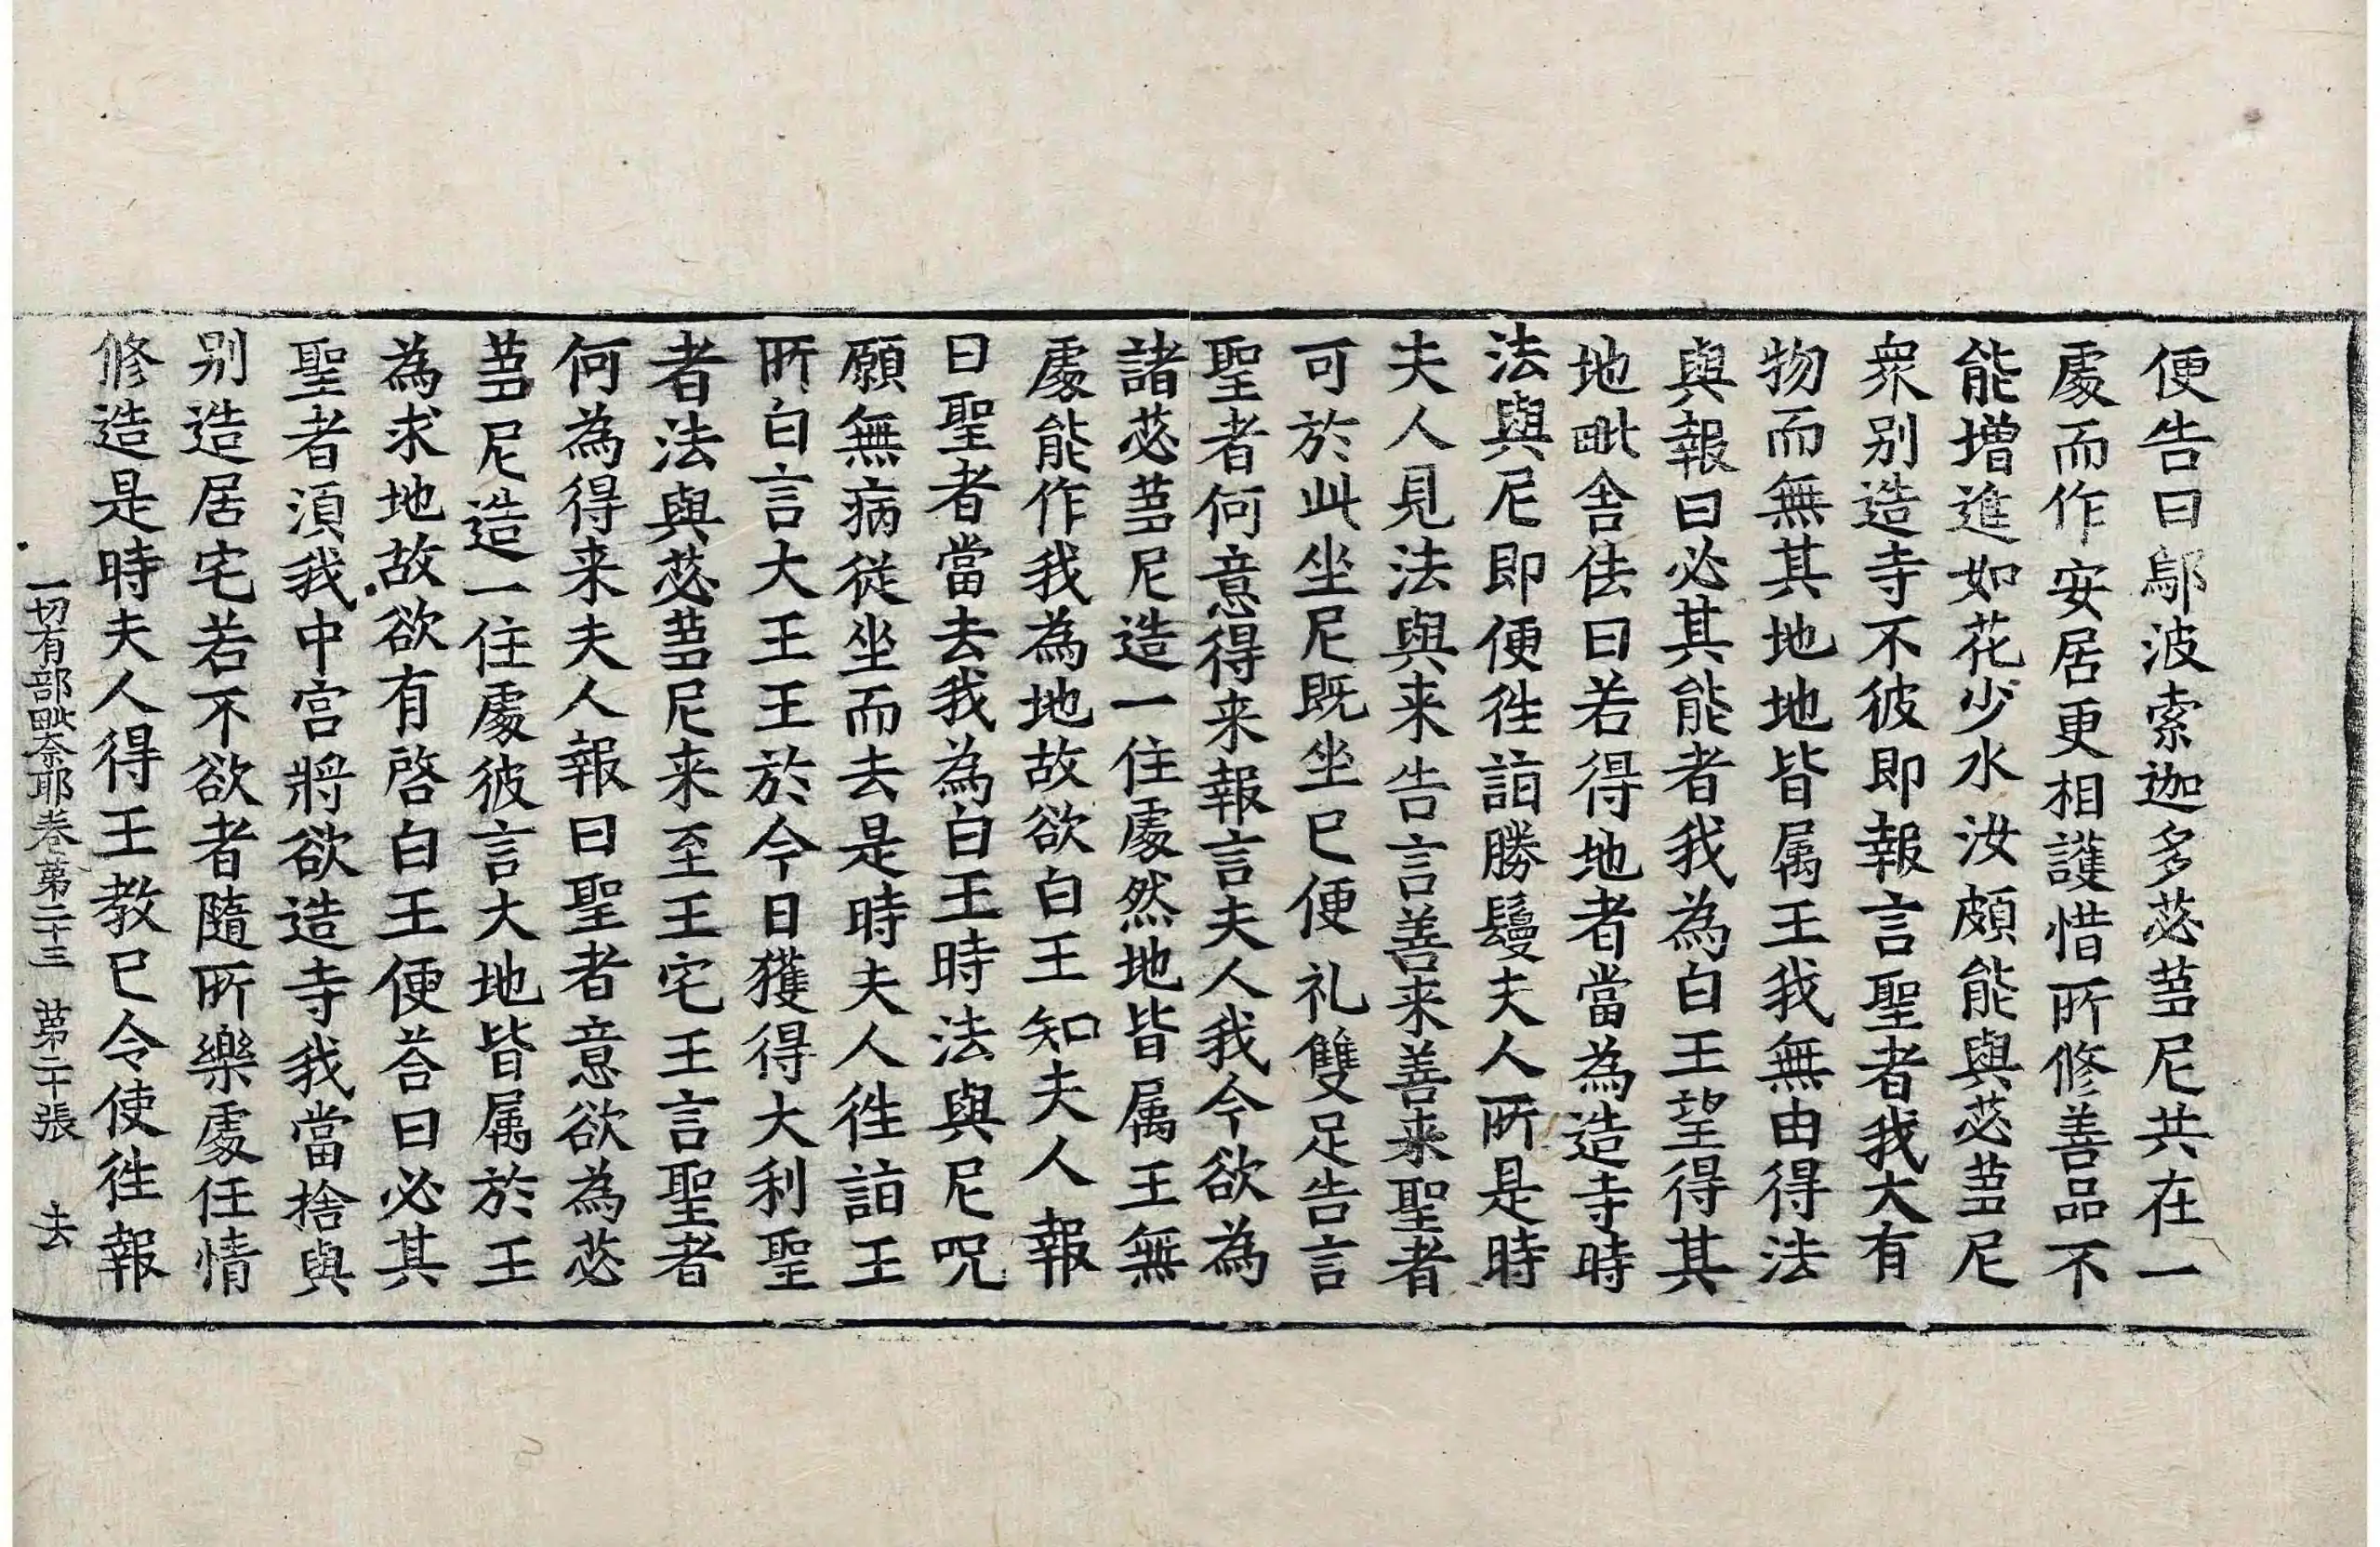 便告曰鄔波索迦多苾蒭尼共在一
處而作安居更相護惜所修善品不
能增進如花少水汝頗能與苾蒭尼
衆别造寺不彼即報言聖者我大有
物而無其地地皆属王我無由得法
與報曰必其能者我為白王望得其
地毗舍佉曰若得地者當為造寺時
法與尼即便徃詣勝鬘夫人所是時
夫人見法與来告言善来善来聖者
可於此坐尼既坐已便礼雙足告言
聖者何意得来報言夫人我今欲為
諸苾蒭尼造一住處然地皆属王無
處能作我為地故欲白王知夫人報
曰聖者當去我為白王時法與尼呪
願無病從坐而去是時夫人徃詣王
所白言大王王於今日獲得大利聖
者法與苾蒭尼来至王宅王言聖者
何為得来夫人報曰聖者意欲為苾
蒭尼造一住處彼言大地皆属於王
為求地故欲有啓白王便荅曰必其
聖者湏我中宫將欲造寺我當捨與
别造居宅若不欲者隨所樂處任情
修造是時夫人得王教已令使徃報
一切有部毗奈耶卷第二十三　第二十張　去